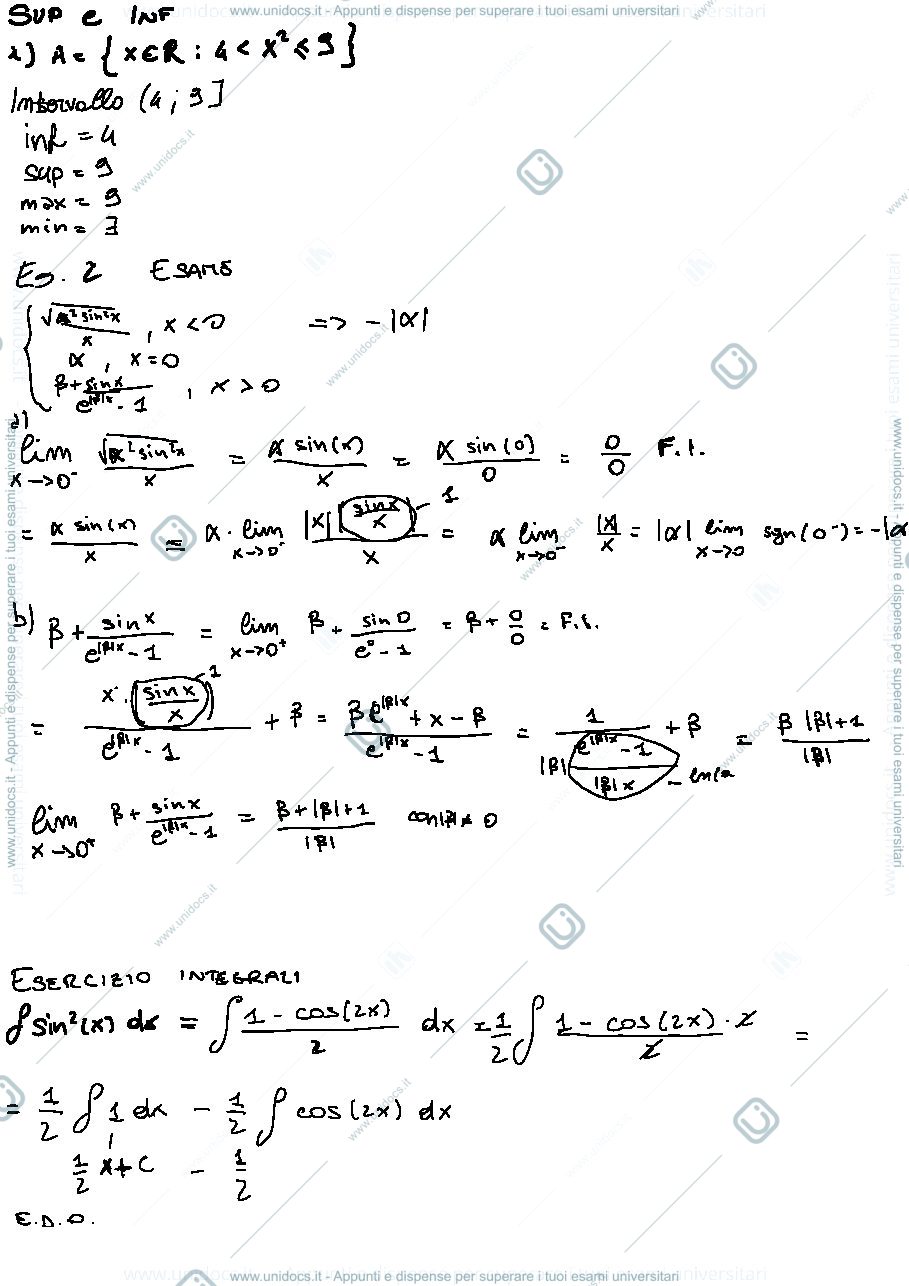 www.unidocs.it - Appunti e dispense per superare i tuoi esami universitari
SUP e INF
1) A = { x∈R : 4 < x² ≤ 9 }
Intervallo (4 ; 9]
inf = 4
sup = 9
max = 9
min = ∄
Es. 2 ESAME
√(α² sin²x) / x , x < 0 => -|α|
α , x = 0
β + sinx / (e^(|β|x) - 1) , x > 0
a)
lim x→0⁻ √(α² sin²x) / x = α sin(x) / x = α sin(0) / 0 = 0/0 F.I.
= α sin(x) / x = α · lim x→0⁻ |x| |sinx / x| / x = α lim x→0⁻ |x| / x = |α| lim x→0 sgn(0⁻) = -|α
b) β + sinx / (e^(|β|x) - 1) = lim x→0⁺ β + sin0 / (e⁰ - 1) = β + 0/0 = F.I.
= x · (sinx / x) / (e^(|β|x) - 1) + β = (β e^(|β|x) + x - β) / (e^(|β|x) - 1) = 1 / (|β| (e^(|β|x) - 1) / (|β|x)) + β = (β |β| + 1) / |β|
lim x→0⁺ β + sinx / (e^(|β|x) - 1) = (β + |β| + 1) / |β| con |β| ≠ 0
ESERCIZIO INTEGRALI
∫ sin²(x) dx = ∫ (1 - cos(2x)) / 2 dx = 1/2 ∫ (1 - cos(2x) · 2) / 2 =
= 1/2 ∫ 1 dx - 1/2 ∫ cos(2x) dx
1/2 x + C - 1/2
E.D.O.
www.unidocs.it - Appunti e dispense per superare i tuoi esami universitari